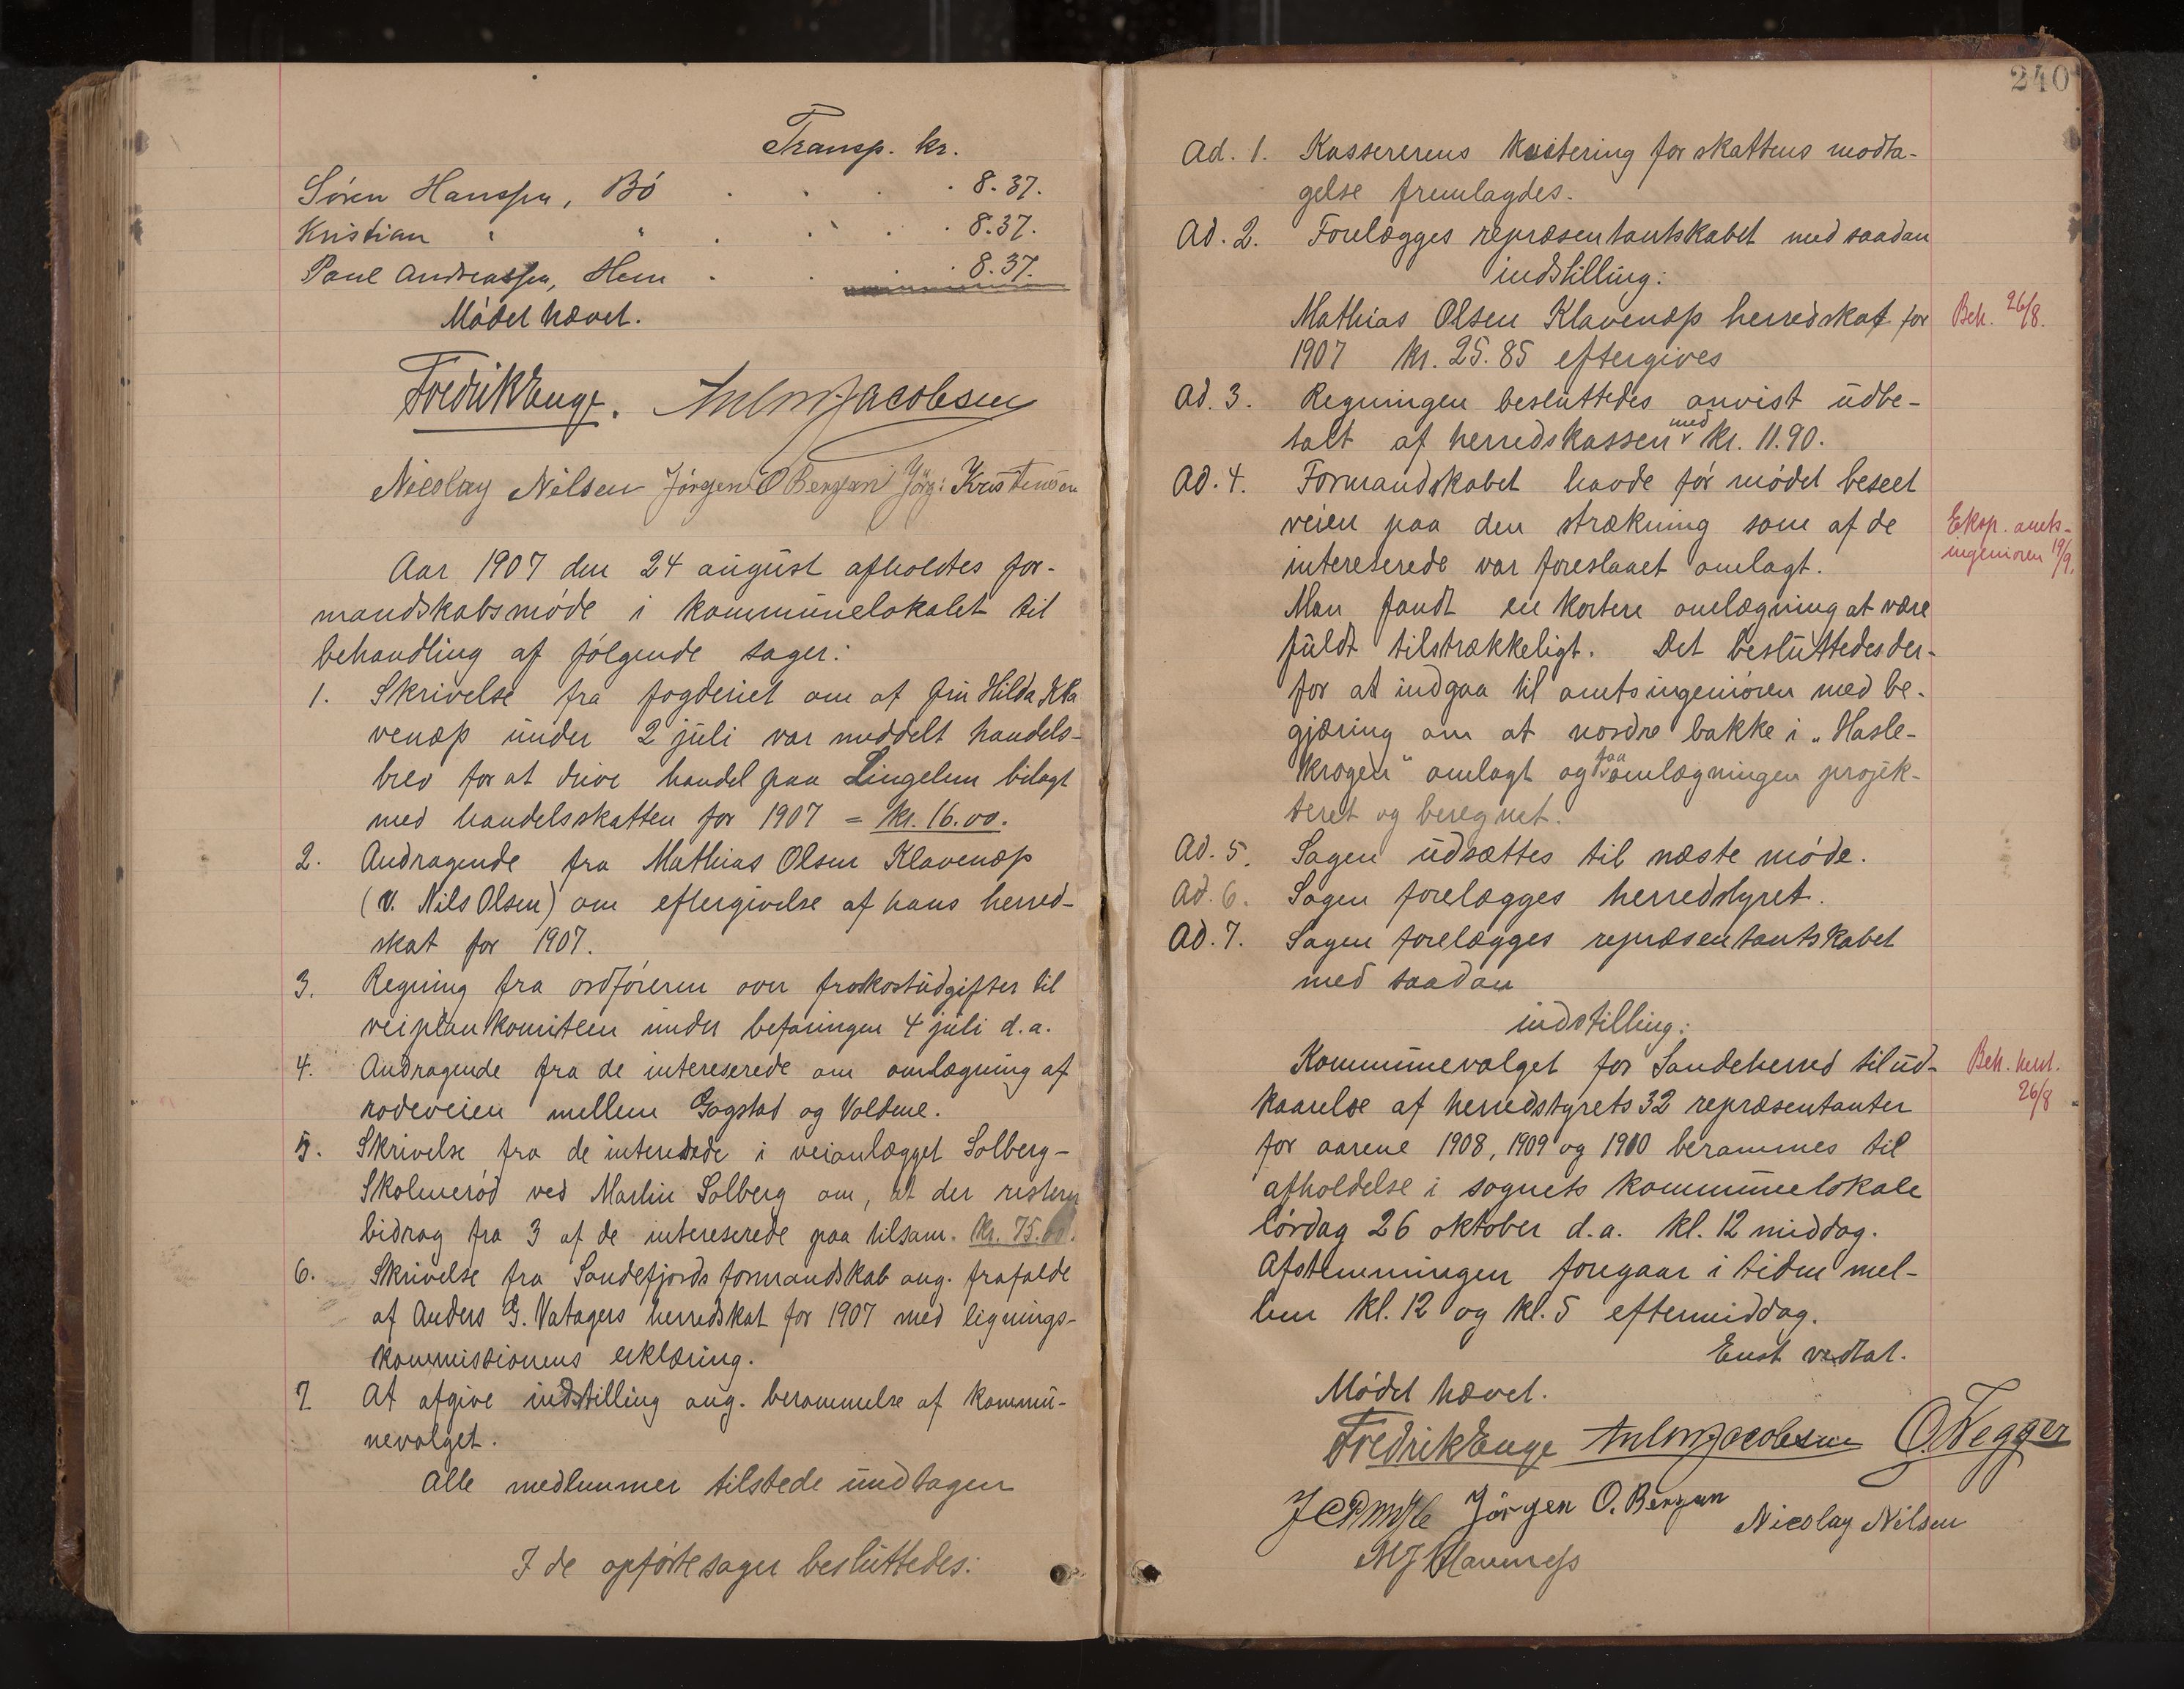 Transp. kr.
Sören Hanssen, Bö . . . . 8.37.
Kristian " " . . . . 8.37.
Paul Andreassen, Hem . . . 8.37.
Mödet hævet.
Fredrik Enge. Anton Jacobsen
Nicolay Nilsen Jörgen O Bergan Jörg: Kristensen
Aar 1907 den 24 august afholdtes for-
mandskabsmöde i kommunelokalet til
behandling af fölgende sager:
1. Skrivelse fra fogderiet om at fru Hilda Kla
venæs under 2 juli var meddelt handels-
brev for at drive handel paa Lingelem bilagt
med handelsskatten for 1907 = kr. 16.00.
2. Andragende fra Mathias Olsen Klavenæs
(v. Nils Olsen) om eftergivelse af hans herred-
skat for 1907.
3. Regning fra ordföreren over frokostudgifter til
veiplankomiteen under befaringen 4 juli d.a.
4. Andragende fra de intereserede om omlægning af
rodeveien mellem Gogstad og Voldene.
5. Skrivelse fra de intereserede i veianlægget Solberg-
Skolmeröd ved Martin Solberg om, at der resterer
bidrag fra 3 af de intereserede paa tilsam. kr. 75.00.
6. Skrivelse fra Sandefjords formandskab ang. frafalde
af Anders G. Vatagers herredskat for 1907 med lignings-
kommissionens erklæring.
7. At afgive indstilling ang. berammelse af kommu-
nevalget.
Alle medlemmer tilstede undtagen
I de opförte sager besluttedes:
240
Ad. 1. Kassererens kvittering for skattens modta-
gelse fremlagdes.
Ad. 2. Forelægges repræsentantskabet med saadan
indstilling:
Mathias Olsen Klavenæs herredskat for
Beh. 26/8.
1907 kr. 25.85 eftergives
Ad. 3. Regningen besluttedes anvist udbe-
talt af herredskassen med kr. 11.90.
Ad. 4. Formandskabet havde för mödet beseet
veien paa den strækning som af de
Eksp. amts-
ingeniören 19/9.
intereserede var foreslaaet omlagt.
Man fandt en kortere omlægning at være
fuldt tilstrækkeligt. Det besluttedes der-
for at indgaa til amtsingeniören med be-
gjæring om at nordre bakke i „Hasle-
krogen" omlagt og faa omlægningen projek-
teret og beregnet.
Ad. 5. Sagen udsættes til næste möde.
Ad. 6. Sagen forelægges herredstyret.
Ad. 7. Sagen forelægges repræsentantskabet
med saadan
indstilling:
Kommunevalget for Sandeherred til ud-
Beh. herst.
26/8
kaarelse af herredstyrets 32 repræsentanter
for aarene 1908, 1909 og 1910 berammes til
afholdelse i sognets kommunelokale
lördag 26 oktober d.a. kl. 12 middag.
Afstemningen foregaar i tiden mel-
lem kl. 12 og kl. 5 eftermiddag.
Enst vedtat.
Mödet hævet.
Fredrik Enge Anton Jacobsen O. Wegger
Jörgen O. Bergan Nicolay Nilsen